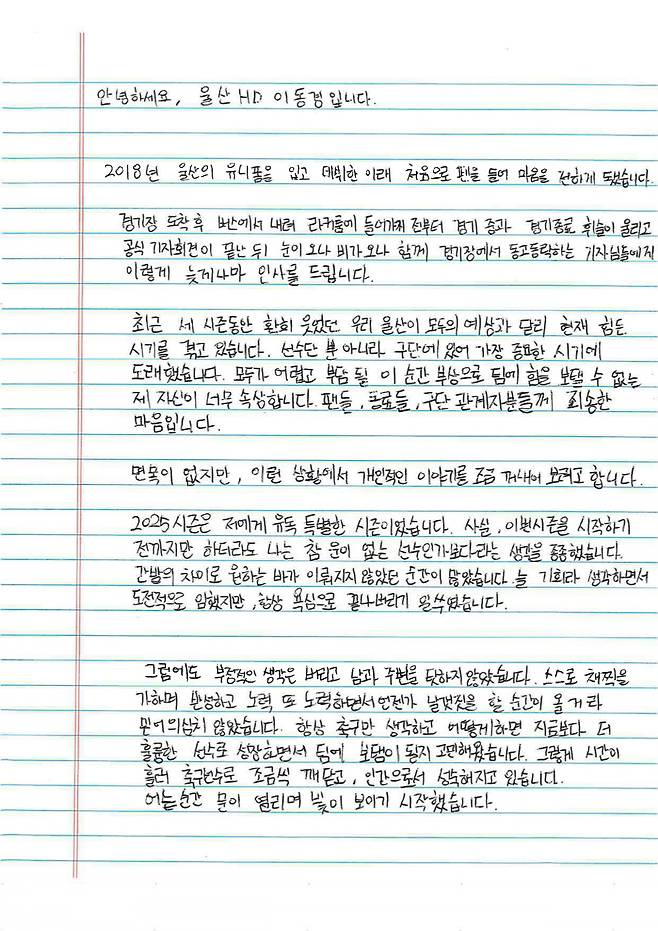 안녕하세요, 울산 HD 이동경입니다.
2018년 울산의 유니폼을 입고 데뷔한 이래 처음으로 펜을 들어 마음을 전하게 됐습니다.
경기장 도착 후 버스에서 내려 라커룸에 들어가기 전부터 경기 중과 경기종료 휘슬이 울리고
공식 기자회견이 끝난 뒤 눈이 오나 비가 오나 함께 경기장에서 동고동락하는 기자님들에게
이렇게 늦게나마 인사를 드립니다.
최근 세 시즌동안 환히 웃었던 우리 울산이 모두의 예상과 달리 현재 힘든
시기를 겪고 있습니다. 선수단 뿐 아니라 구단에 있어 가장 중요한 시기에
도래했습니다. 모두가 어렵고 부담 될 이 순간 부상으로 팀에 힘을 보탤 수 없는
제 자신이 너무 속상합니다. 팬들, 동료들, 구단 관계자분들께 죄송한
마음입니다.
면목이 없지만, 이런 상황에서 개인적인 이야기를 조금 꺼내어 보려고 합니다.
2025시즌은 저에게 유독 특별한 시즌이었습니다. 사실, 이번시즌을 시작하기
전까지만 하더라도 나는 참 운이 없는 선수인가보다라는 생각을 종종했습니다.
간발의 차이로 원하는 바가 이뤄지지 않았던 순간이 많았습니다. 늘 기회라 생각하면서
도전적으로 임했지만, 항상 욕심으로 끝나버리기 일쑤였습니다.
그럼에도 부정적인 생각은 버리고 남과 주변을 탓하지 않았습니다. 스스로 채찍을
가하며 반성하고 노력 또 노력하면서 언젠가 날갯짓을 할 순간이 올 거라
믿어 의심치 않았습니다. 항상 축구만 생각하고 어떻게하면 지금보다 더
훌륭한 선수로 성장하면서 팀에 보탬이 될지 고민해왔습니다. 그렇게 시간이
흘러 축구선수로 조금씩 깨닫고, 인간으로서 성숙해지고 있습니다.
어느순간 문이 열리며 빛이 보이기 시작했습니다.